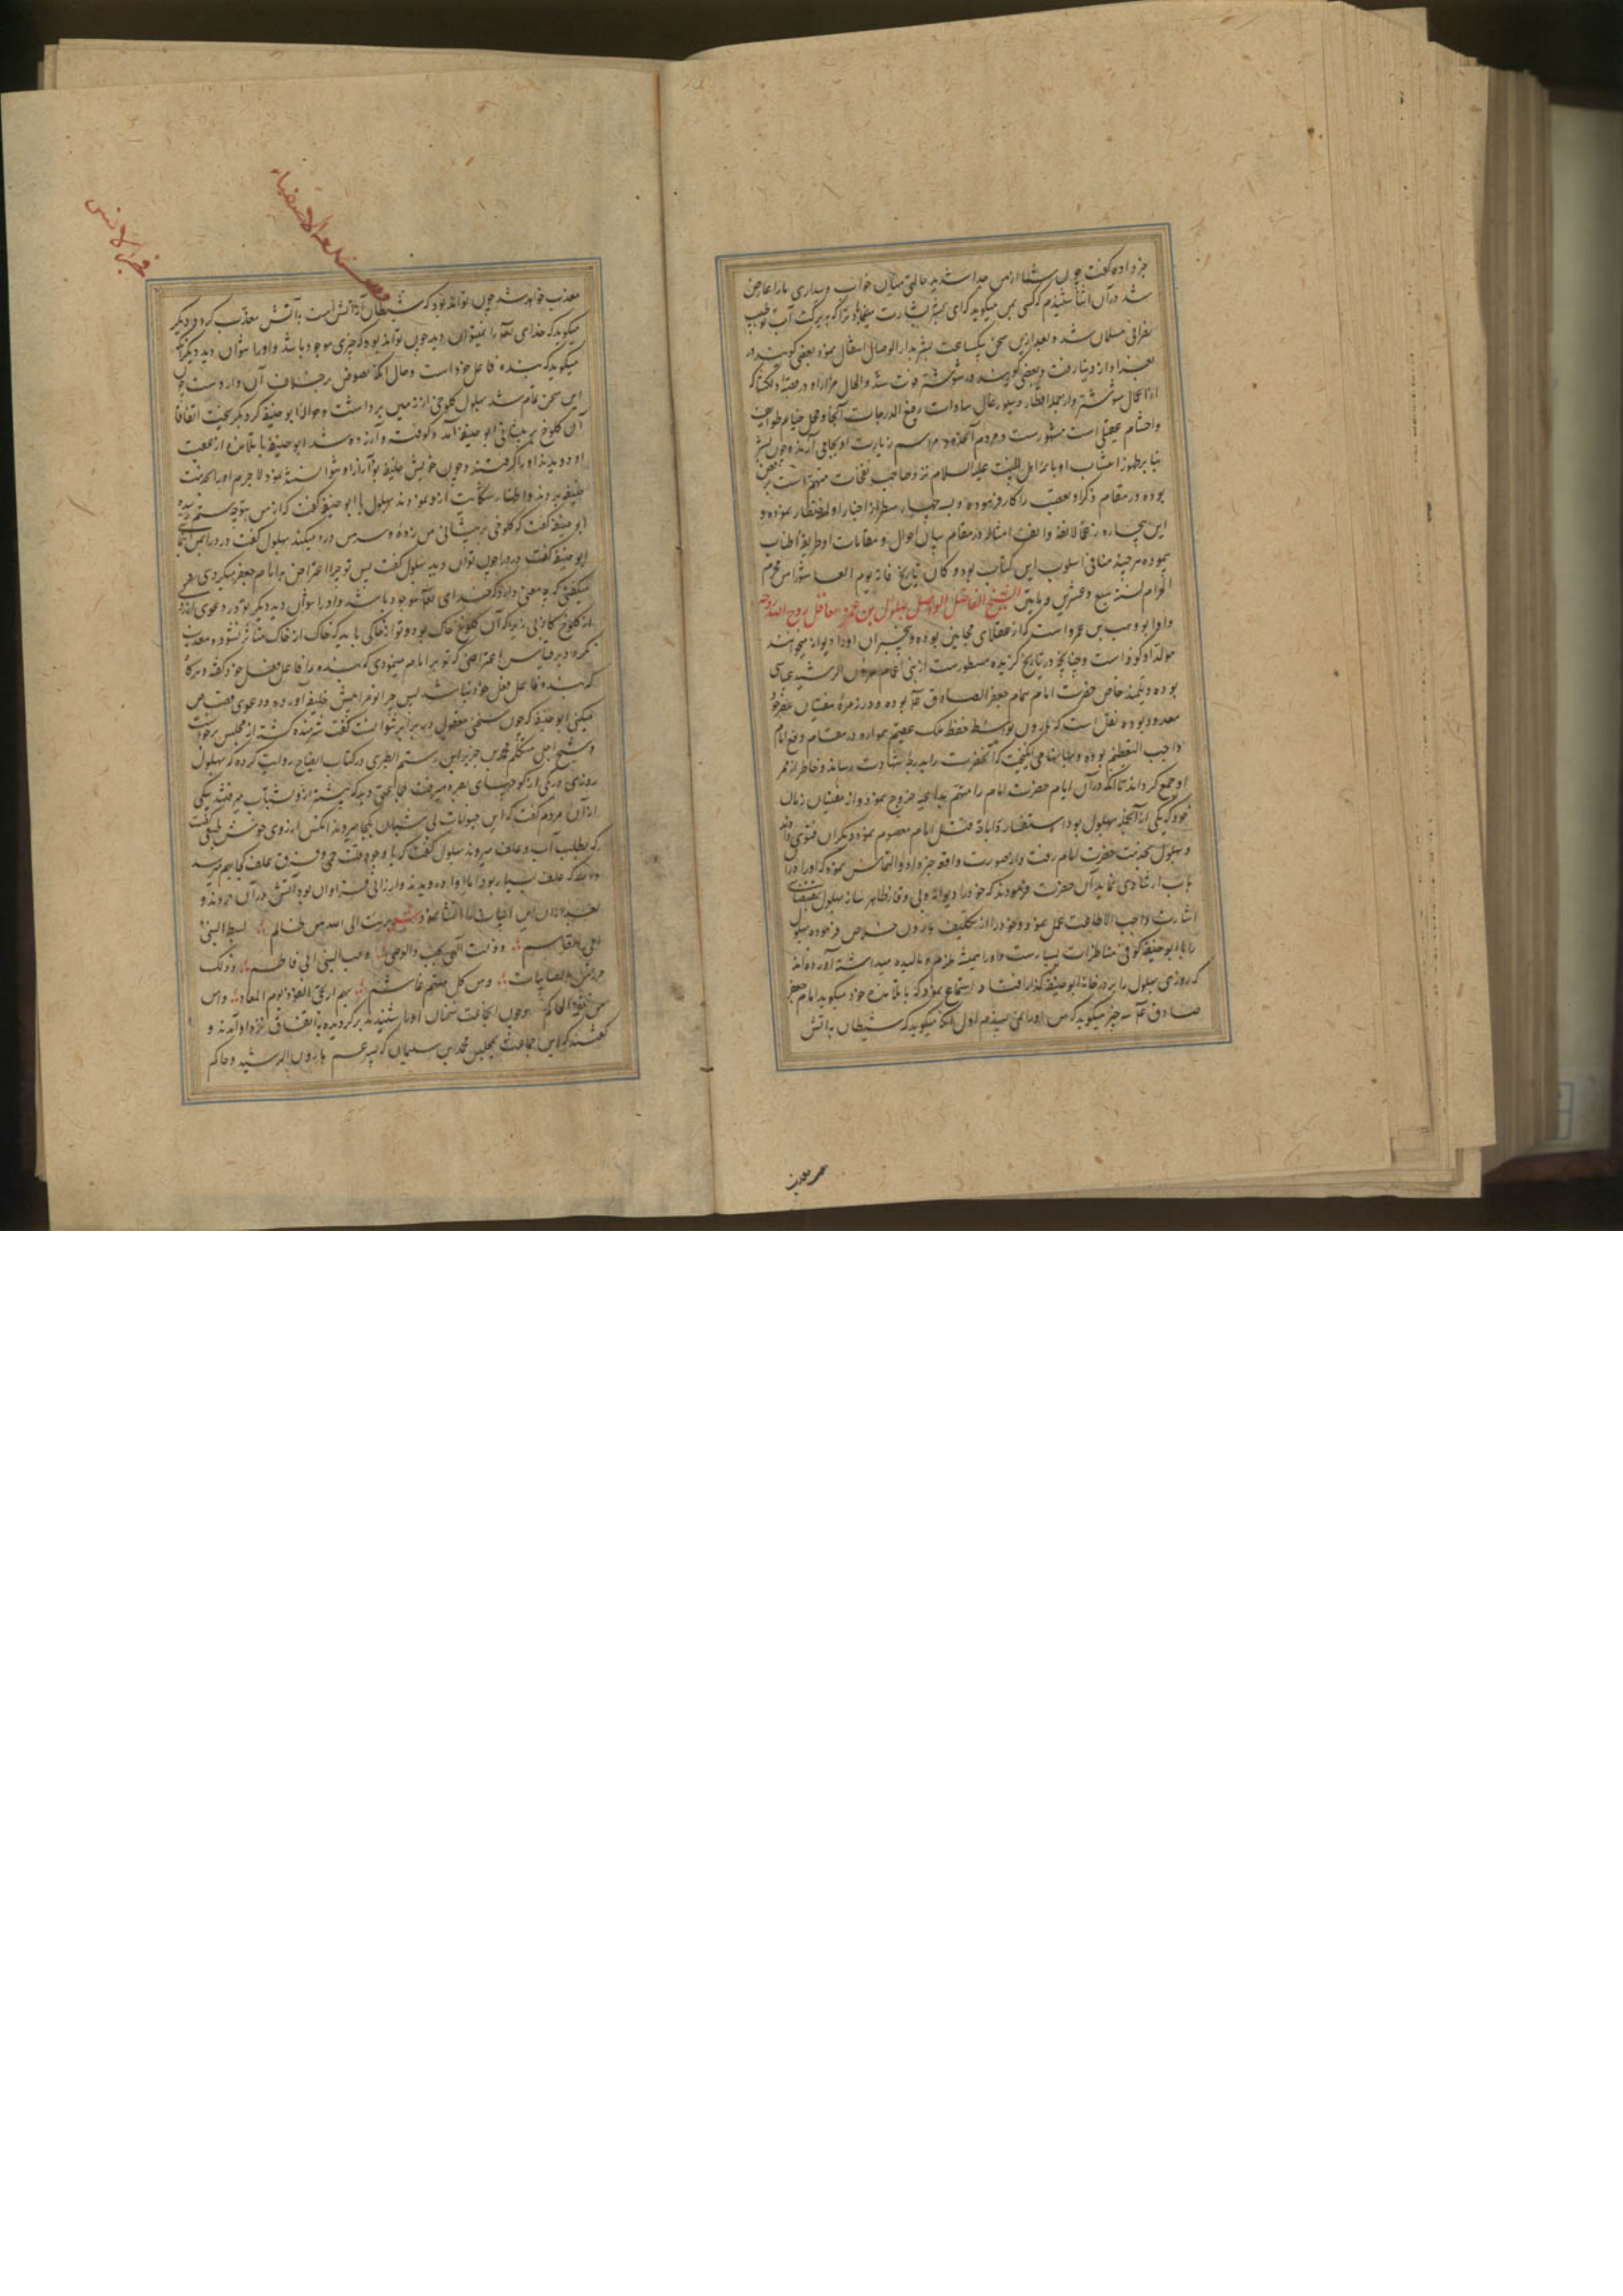 خبر داده گفت چون شما از من جدا شدید حالتی میان خواب و بیداری مارا عارض
شد در آن اثنا شنیدم که کسی بمن میگوید که ای بشر بشارت میخواهد ترا که به برکت آب تو طبیب
نصرانی مسلمان شد و بعد ازین سخن یکساعت بشر بدار الوصال انتقال نموده بعضی گویند در
بغداد از دنیا رفت و بعضی گویند در شوشتر فوت شد و الحال مزار او در قصبه
از اعمال شوشتر و از جمله اقطار و سیورغال سادات رفیع الدرجات آنجا و محل خیام طوایف
و احشام عقیلی است مشهورست و مردم آنحدود مراسم زیارت او بجا می آرند و چون بشر
بنا بر ظهور انتساب او بائمه اهل البیت علیه السلام نزد صاحب نفحات متهم است برفض
بوده در مقام ذکر او تعصب را کار فرموده و به چهار سطر از اخبار او اختصار نموده و
این بیچاره رغما لانفه و انف امثاله در مقام بیان احوال و مقامات او طریقه اطناب
پیموده هر چند منافی اسلوب این کتاب بود و کان تاریخ فاته یوم العاشورا من محرم
الحرام لسنة سبع و عشرین و مایتین الشیخ الفاضل الواصل بهلول بن عمرو العاقل روح الله روحه
و او ابو وهب بن عمرو است که از عقلای مجانین بوده و بیخبران او را دیوانه میخوانند
مولد او کوفه است و چنانچه در تاریخ گزیده مسطورست از بنی اعمام هرون الرشید عباسی
بوده و تلمیذ خاص حضرت امام همام جعفر الصادق ع بوده و در زمره مفتیان عصر خود
معدود بوده نقل است که هارون بواسطه حفظ ملک عقیم همواره در مقام دفع امام
واجب التعظیم بوده و بهانها می انگیخت که آنحضرت را بدرجه شهادت رساند و خاطر از ممر
او جمع گرداند تا آنکه در آن ایام حضرت امام را متهم بداعیه خروج نمود و از مفتیان زمان
خود که یکی از آنجمله بهلول بود استفسار اباحه قتل امام معصوم نموده دیگران فتوی دادند
و بهلول بخدمت حضرت امام رفت و از صورت واقعه خبر داد و التماس نموده که او را درا
باب ارشادی نماید آن حضرت فرمودند که خود را دیوانه و بی وقار ظاهر ساز بهلول بمقتضای
اشارت واجب الاطاعت عمل نمود و خود را از تکلیف هارون خلاص فرموده بهلول
را با ابو حنیفه کوفی مناظرات بسیار ست و او را همیشه ملزم و مالیده میداشته آورده اند
که روزی بهلول را بر در خانه ابو حنیفه گذار افتاد استماع نمود که با تلامذه خود میگوید امام جعفر
صادق ع سه چیز میگوید که من او را نمی پسندم اول آنکه میگوید که شیطان به آتش
معذب
معذب خواهد شد چون تواند بود که شیطان از آتش است به آتش معذب گردد و دیگر
میگوید که خدای تعالی را نمیتوان دید چون تواند بود که چیزی موجود باشد و او را نتوان دید دیگر آنکه
میگوید که بنده فاعل خود است و حال آنکه نصوص بر خلاف آن وارد ست چون
این سخن تمام شد بهلول کلوخی از زمین برداشت و حواله ابو حنیفه کرد و بگریخت اتفاقا
آن کلوخ بر پیشانی ابو حنیفه آمد و کوفته و آزرده شد ابو حنیفه با تلامذه از عقب
او دویدند او را گرفتند و چون خویش خلیفه بود آزار او نتوانسته نمود لاجرم او را بخدمت
خلیفه بردند و اظهار شکایت ازو نمودند بهلول با ابو حنیفه گفت که از من بتو چه ستم رسیده
ابو حنیفه گفت که کلوخی بر پیشانی من زده و سر من درد میکند بهلول گفت درد را بمن نما
ابو حنیفه گفت درد را چون توان دید بهلول گفت پس تو چرا اعتراض بر امام جعفر میکردی و
میگفتی که چه معنی دارد که خدای تعالی موجود باشد و او را نتوان دید دیگر تو در دعوی آزرد
از کلوخ کاذبی زیرا که آن کلوخ خاک بوده و تو از خاکی باید که خاک از خاک متأثر نشود و معذب
نگردد بر قیاس اعتراضی که تو بر امام مینمودی که بنده را فاعل فعل خود گفته و هرگاه
که بنده فاعل فعل خود نباشد پس چرا تو مرا پیش خلیفه آورده و دعوی قصاص
میکنی ابو حنیفه که چون سخنی معقول در برابر نتوانست گفت شرمنده گشته از مجلس برخواست
و شیخ اجل متکلم محمد بن جریر ابن رستم الطبری در کتاب ایضاح روایت کرده که بهلول
روزی در یکی از کوچهای بصره میرفت جماعتی دید که پیشتر ازو بشتاب میرفتند یکی
از آن مردم گفت که این حیوانات بی شبان بکجا میروند آنکس از روی خوش طبعی گفت
که بطلب آب و علف میروند بهلول گفت که با وجود منع حمی و قرق علف کجا بهم رسد
والله که علف بسیار بود اما و ارزانی فراوان بود آتش در آن زدند و
بعد از آن این ابیات را انشا نمود شعر برئت الی الله من ظالم لسبط النبی
ابی القاسم و دنت الهی بحب الوصی و حب النبی ابی فاطم و ذلک
حرز من النایبات و من کل متهم غاشم بهم ارتجی الفوز یوم المعاد و امن
من نقمة الحاکم و چون انجماعت سخنان او را شنیدند برگردیده به اتفاق نزد او آمدند و
گفتند که این جماعت بمجلس محمد بن سلیمان که پسر عم هارون الرشید و حاکم